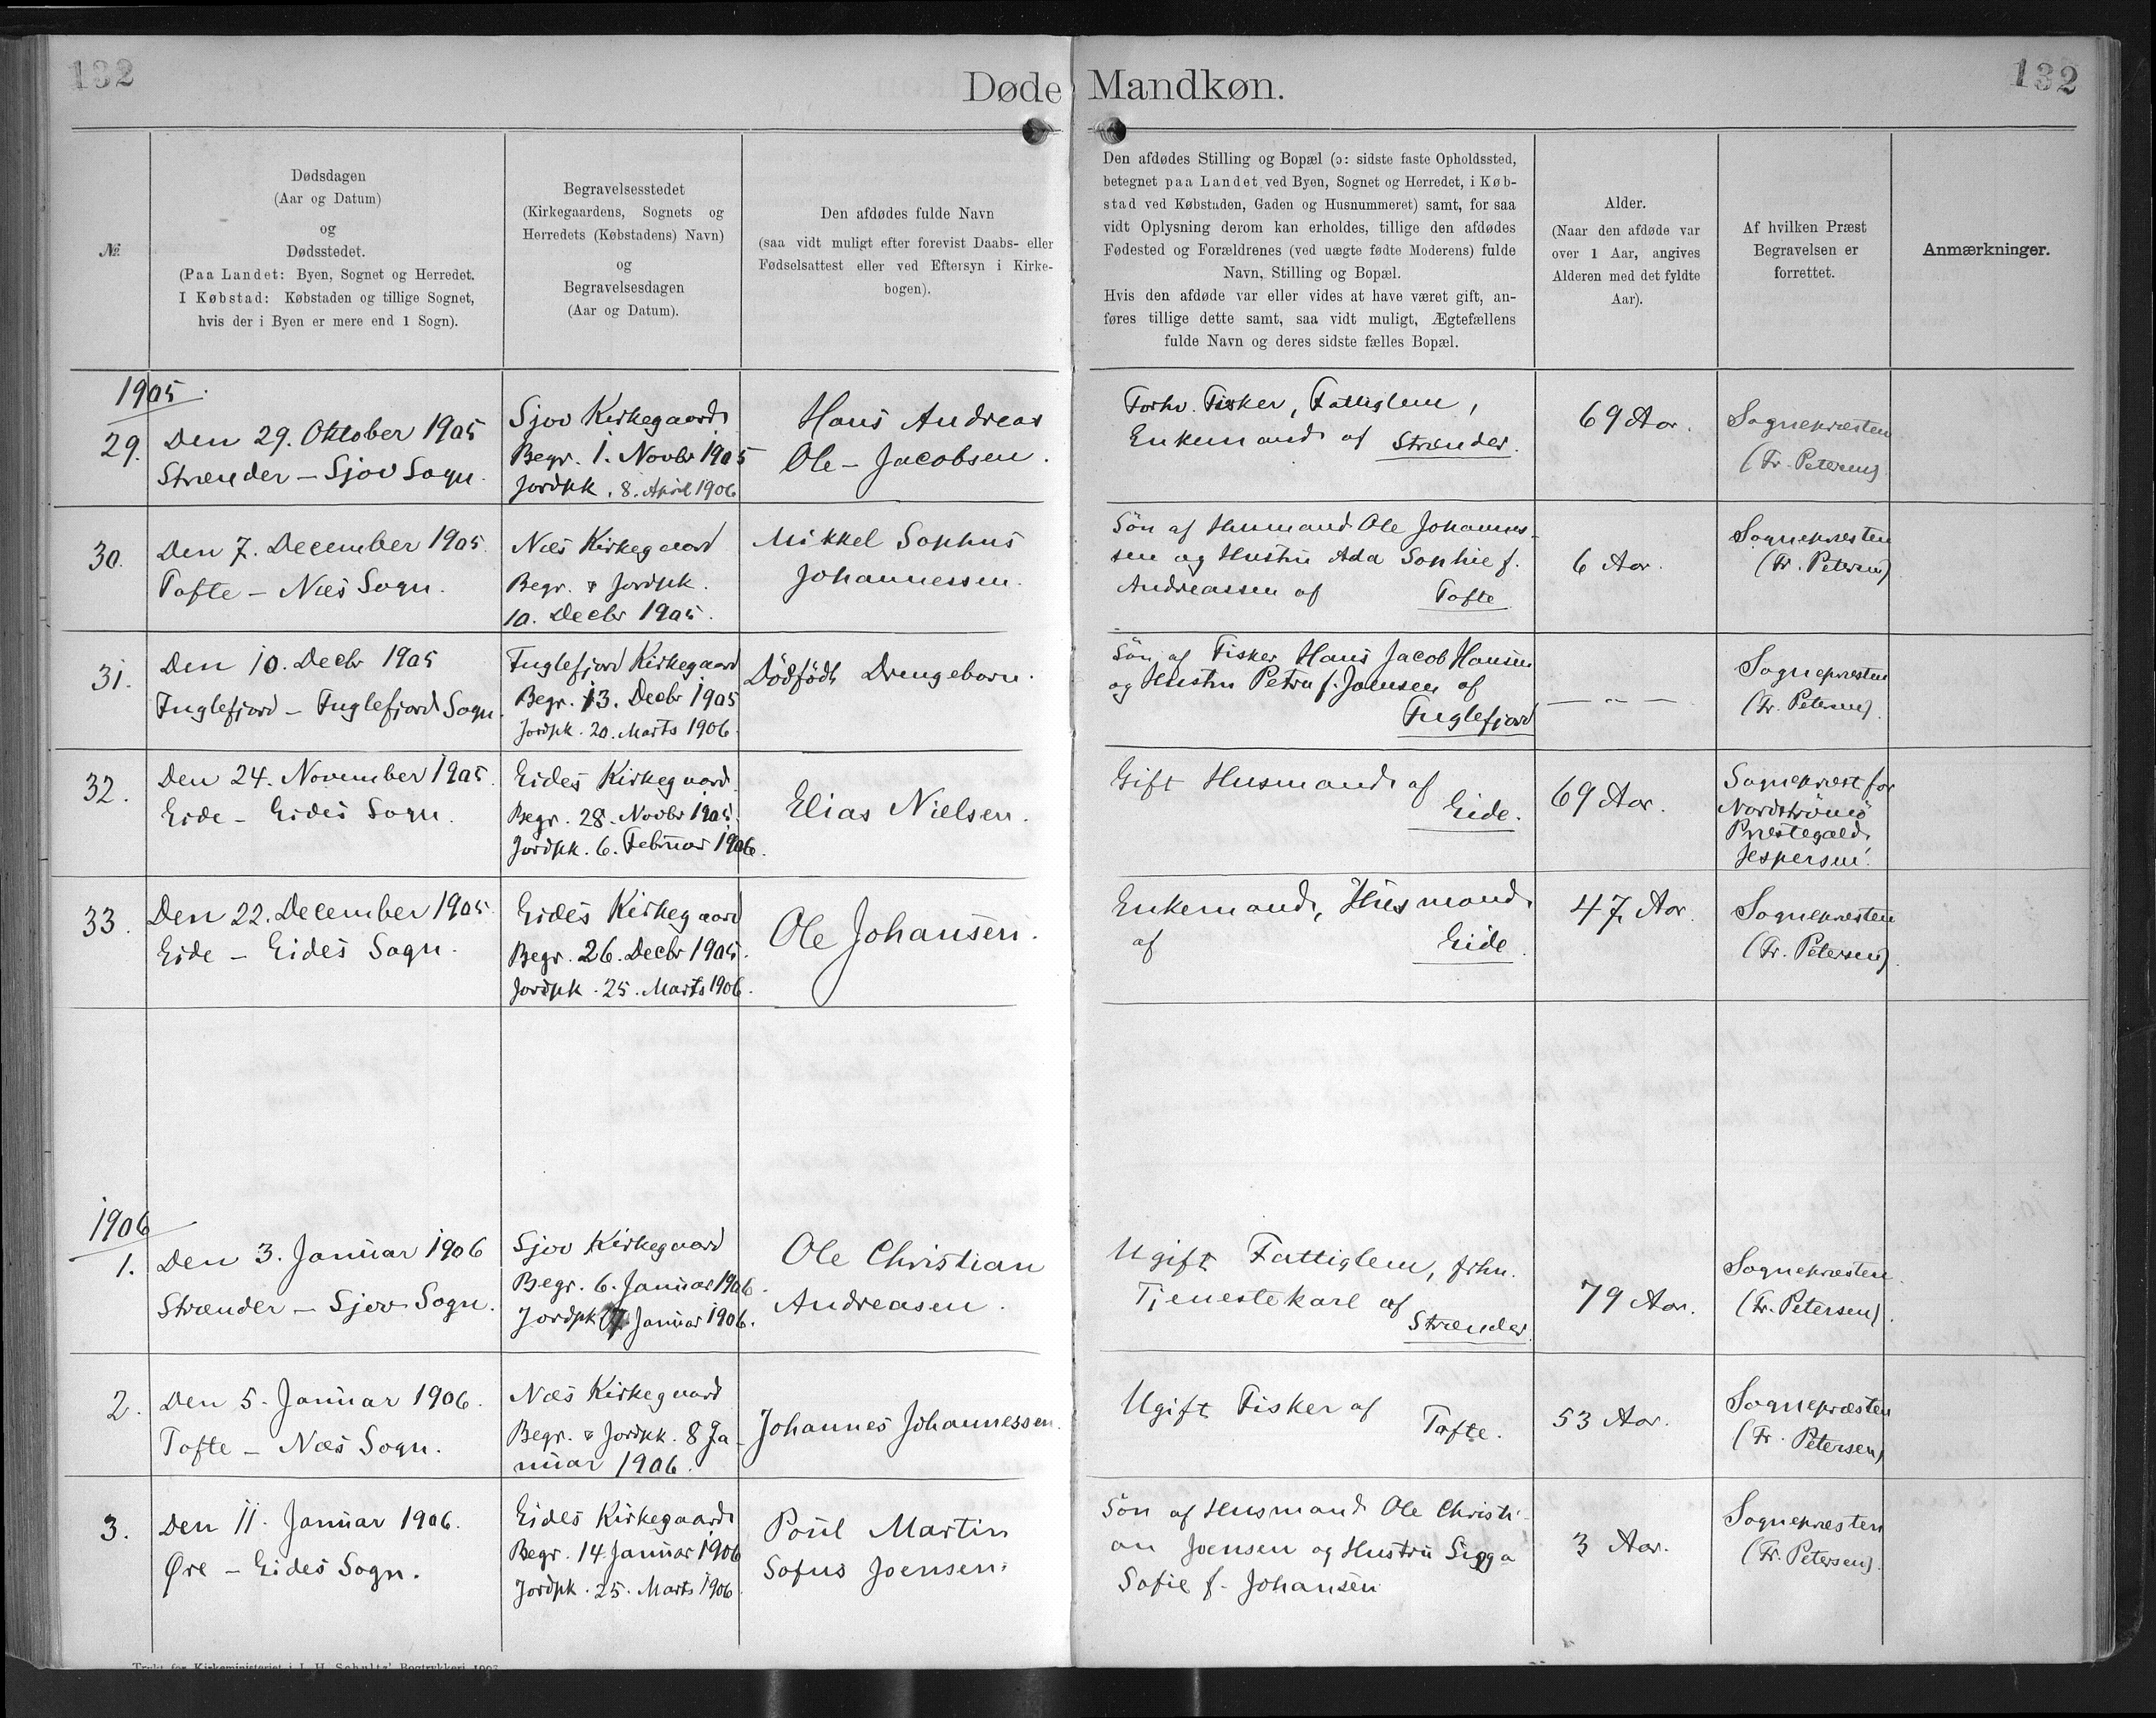 132
132
Døde Mandkøn.
№
Dødsdagen
(Aar og Datum)
og
Dødsstedet.
(Paa Landet: Byen, Sognet og Herredet.
I Købstad: Købstaden og tillige Sognet,
hvis der i Byen er mere end 1 Sogn).
Begravelsesstedet
(Kirkegaardens, Sognets og
Herredets (Købstadens) Navn)
og
Begravelsesdagen
(Aar og Datum).
Den afdødes fulde Navn
(saa vidt muligt efter forevist Daabs- eller
Fødselsattest eller ved Eftersyn i Kirke-
bogen).
Den afdødes Stilling og Bopæl (ɔ: sidste faste Opholdssted,
betegnet paa Landet ved Byen, Sognet og Herredet, i Køb-
stad ved Købstaden, Gaden og Husnummeret) samt, for saa
vidt Oplysning derom kan erholdes, tillige den afdødes
Fødested og Forældrenes (ved uægte fødte Moderens) fulde
Navn, Stilling og Bopæl.
Hvis den afdøde var eller vides at have været gift, an-
føres tillige dette samt, saa vidt muligt, Ægtefællens
fulde Navn og deres sidste fælles Bopæl.
Alder.
(Naar den afdøde var
over 1 Aar, angives
Alderen med det fyldte
Aar).
Af hvilken Præst
Begravelsen er
forrettet.
Anmærkninger.
1905
29.
Den 29. Oktober 1905
Strænder – Sjov Sogn.
Sjov Kirkegaard
Begr. 1. Novbr 1905
Jordpk. 8. April 1906
Hans Andreas
Ole – Jacobsen.
Forhv. Fisker, Fattiglem,
Enkemand af Strænder.
69 Aar.
Sognepræsten
(Fr. Petersen)
30.
Den 7. December 1905.
Tofte – Næs Sogn.
Næs Kirkegaard
Begr. & Jordpk.
10. Decbr 1905.
Mikkel Sophus
Johannessen.
Søn af Husmand Ole Johannes-
sen og Hustru Ada Sophie f.
Andreassen af Tofte
6 Aar.
Sognepræsten
(Fr. Petersen)
31.
Den 10. Decbr 1905
Fuglefjord – Fuglefjord Sogn.
Fuglefjord Kirkegaard
Begr. 13. Decbr 1905
Jordpk. 20. Marts 1906.
Dødfødt Drengebarn.
Søn af Fisker Hans Jacob Hansen
og Hustru Petra f. Joensen af
Fuglefjord
— „ —
Sognepræsten
(Fr. Petersen).
32.
Den 24. November 1905.
Eide – Eides Sogn.
Eides Kirkegaard.
Begr. 28. Novbr 1905.
Jordpk. 6. Februar 1906.
Elias Nielsen.
Gift Husmand af
Eide.
69 Aar.
Sognepræst for
Nordstrømø
Præstegæld,
Jespersen.
33.
Den 22. December 1905.
Eide – Eides Sogn.
Eides Kirkegaard
Begr. 26. Decbr 1905.
Jordpk. 25. Marts 1906.
Ole Johansen.
Enkemand, Husmand
af Eide.
47 Aar.
Sognepræsten
(Fr. Petersen).
1906
1.
Den 3. Januar 1906
Strænder – Sjov Sogn.
Sjov Kirkegaard
Begr. 6. Januar 1906.
Jordpk 7. Januar 1906.
Ole Christian
Andreasen.
Ugift Fattiglem, frhv.
Tjenestekarl af
Strænder.
79 Aar.
Sognepræsten.
(Fr. Petersen).
2.
Den 5. Januar 1906.
Tofte – Næs Sogn.
Næs Kirkegaard
Begr. & Jordpk. 8 Ja-
nuar 1906.
Johannes Johannessen.
Ugift Fisker af
Tofte.
53 Aar.
Sognepræsten
(Fr. Petersen)
3.
Den 11. Januar 1906.
Øre – Eides Sogn.
Eides Kirkegaard
Begr. 14. Januar 1906
Jordpk. 25. Marts 1906.
Poul Martin
Sofus Joensen.
Søn af Husmand Ole Christi-
an Joensen og Hustru Sigga
Sofie f. Johansen
3 Aar.
Sognepræsten
(Fr. Petersen).
Trykt for Kirkeministeriet i J. H. Schultz' Bogtrykkeri